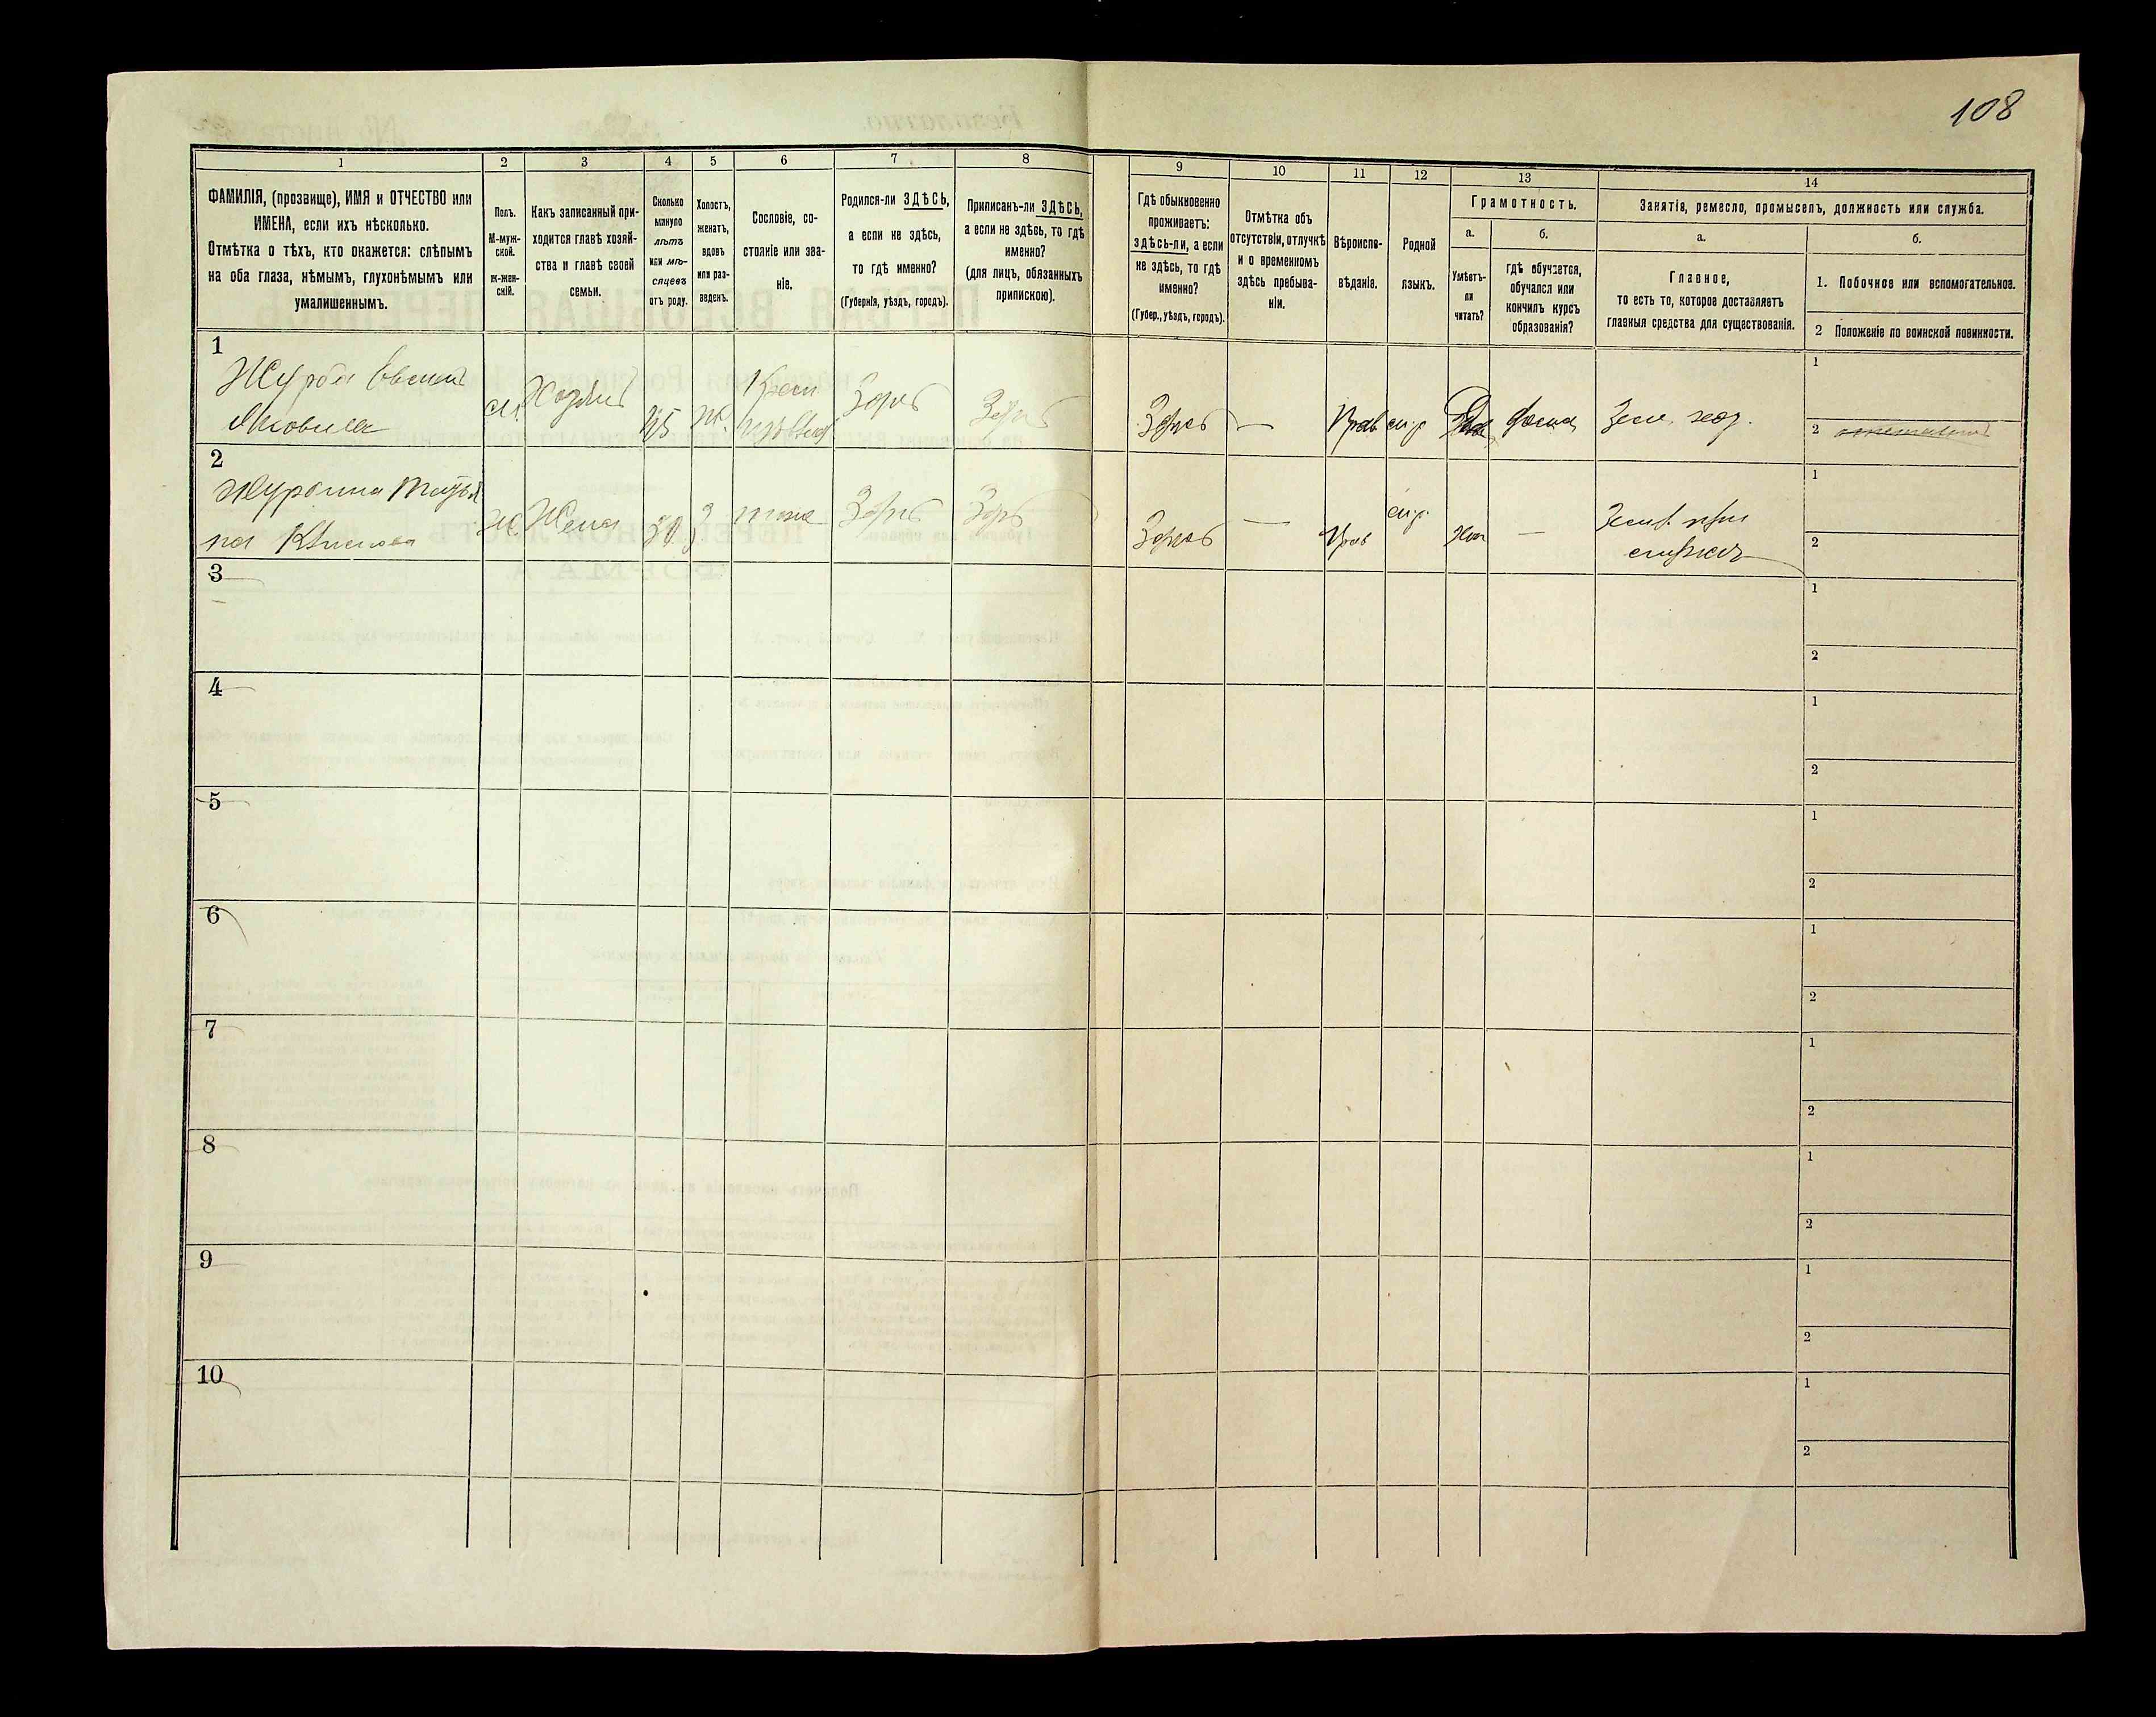 108
1
2
3
4
5
6
7
8
9
10
11
12
13
14
ФАМИЛІЯ, (прозвище), ИМЯ и ОТЧЕСТВО или
ИМЕНА, если ихъ нѣсколько.
Отмѣтка о тѣхъ, кто окажется: слѣпымъ
на оба глаза, нѣмымъ, глухонѣмымъ или
умалишеннымъ.
Полъ.
М-муж-
ской.
ж-жен-
скій.
Какъ записанный при-
ходится главѣ хозяй-
ства и главѣ своей
семьи.
Сколько
минуло
лѣтъ
или мѣ-
сяцевъ
отъ роду.
Холостъ,
женатъ,
вдовъ
или раз-
веденъ.
Сословіе, со-
стояніе или зва-
ніе.
Родился-ли ЗДѢСЬ,
а если не здѣсь,
то гдѣ именно?
(Губернія, уѣздъ, городъ).
Приписанъ-ли ЗДѢСЬ,
а если не здѣсь, то гдѣ
именно?
(для лицъ, обязанныхъ
припискою).
Гдѣ обыкновенно
проживаетъ:
здѣсь-ли, а если
не здѣсь, то гдѣ
именно?
(Губер., уѣздъ, городъ).
Отмѣтка объ
отсутствіи, отлучкѣ
и о временномъ
здѣсь пребыва-
ніи.
Вѣроиспо-
вѣданіе.
Родной
языкъ.
Грамотность.
а.
Умѣетъ-
ли
читать?
б.
гдѣ обучается,
обучался или
кончилъ курсъ
образованія?
Занятія, ремесло, промыселъ, должность или служба.
а.
Главное,
то есть то, которое доставляетъ
главныя средства для существованія.
б.
1. Побочное или вспомогательное.
2 Положеніе по воинской повинности.
1
Журба
Яковлев
м. Хозяинъ 45 ж. Крест.
Здѣсь Здѣсь Здѣсь — Прав Дома Зем. хоз.
1
2
2
Ж Жена 30 З тоже Здѣсь Здѣсь Здѣсь — Прав —
Земл. при
1
2
3
1
2
4
1
2
5
1
2
6
1
2
7
1
2
8
1
2
9
1
2
10
1
2